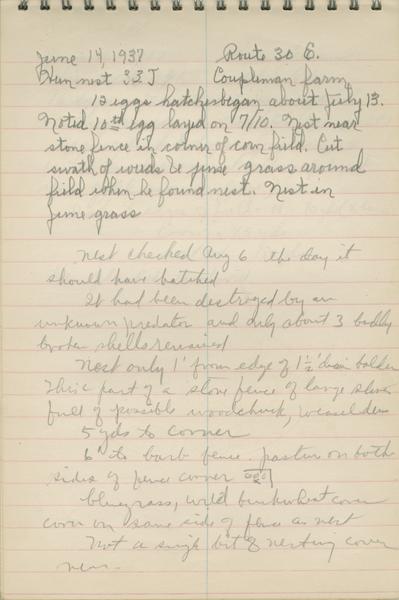 June 14, 1937 Route 30 E.
Hun nest 33J Coupleman farm,
12 eggs hatches began about July 13.
Noted 10th egg layed on 7/10. Nest near
stone fence in corner of corn field. Cut
swath of weeds & june grass around
field when he found nest. Nest in
june grass
Nest checked Aug 6 the day it
should have hatched
It had been destroyed by an
unknown predator and only about 3 badly
broken shells remained
Nest only 1' from edge of 1 1/2' diam
This part of a stone fence of large
full of possible woodchuck, weasel dens
5 yds to corner
6" to barb fence. pasture on both
sides of fence corner
bluegrass, wild buckwheat cover
cover on same side of fence as nest
Not a single bit of nesting cover
near.